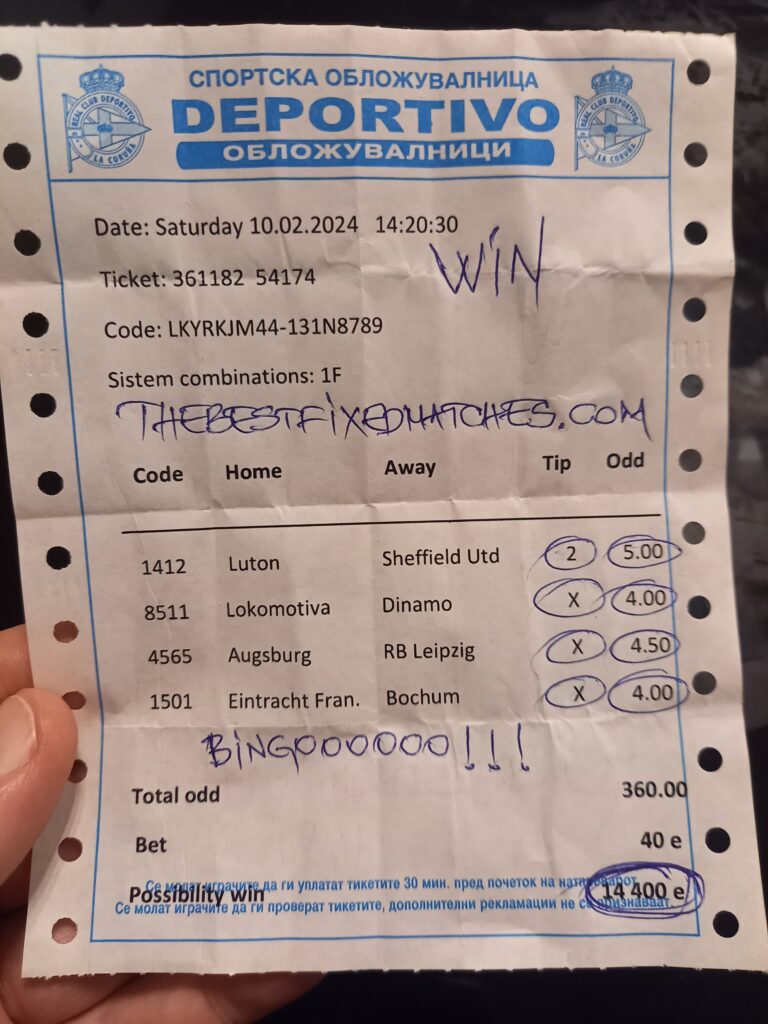 СПОРТСКА ОБЛОЖУВАЛНИЦА
DEPORTIVO
ОБЛОЖУВАЛНИЦИ
REAL CLUB DEPORTIVO LA CORUÑA
REAL CLUB DEPORTIVO LA CORUÑA
Date: Saturday 10.02.2024 14:20:30
WIN
Ticket: 361182 54174
Code: LKYRKJM44-131N8789
Sistem combinations: 1F
THEBESTFIXEDMATCHES.COM
Code Home Away Tip Odd
1412 Luton Sheffield Utd 2 5.00
8511 Lokomotiva Dinamo X 4.00
4565 Augsburg RB Leipzig X 4.50
1501 Eintracht Fran. Bochum X 4.00
BINGOOOOOOO!!!
Total odd 360.00
Bet 40 e
Се молат играчите да ги уплатат тикетите 30 мин. пред почеток на натпреварот
Possibility win 14 400 e
Се молат играчите да ги проверат тикетите, дополнителни рекламации не се признаваат.